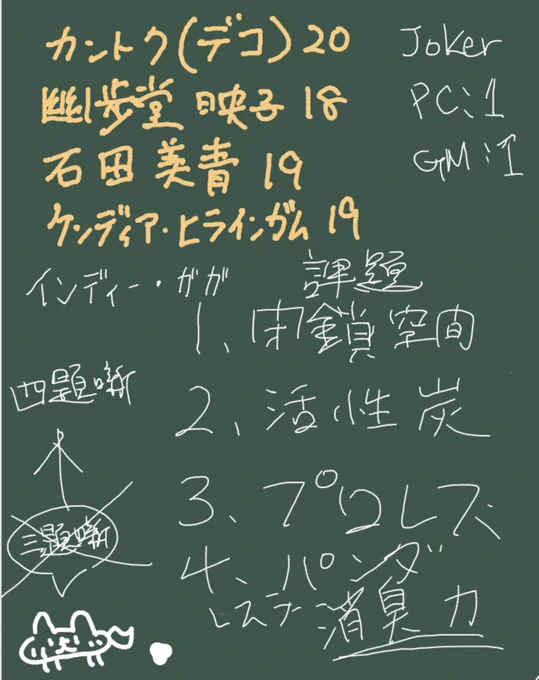 カントク(デコ) 20
幽歩堂 映子 18
石田 美青 19
ケンディア・ヒラインガム 19
Joker
PC:1
GM:1
インディー・ガガ
課題
1、閉鎖空間
2、活性炭
3、プロレス
4、パンダ
レスラー
消臭力
四題噺
三題噺